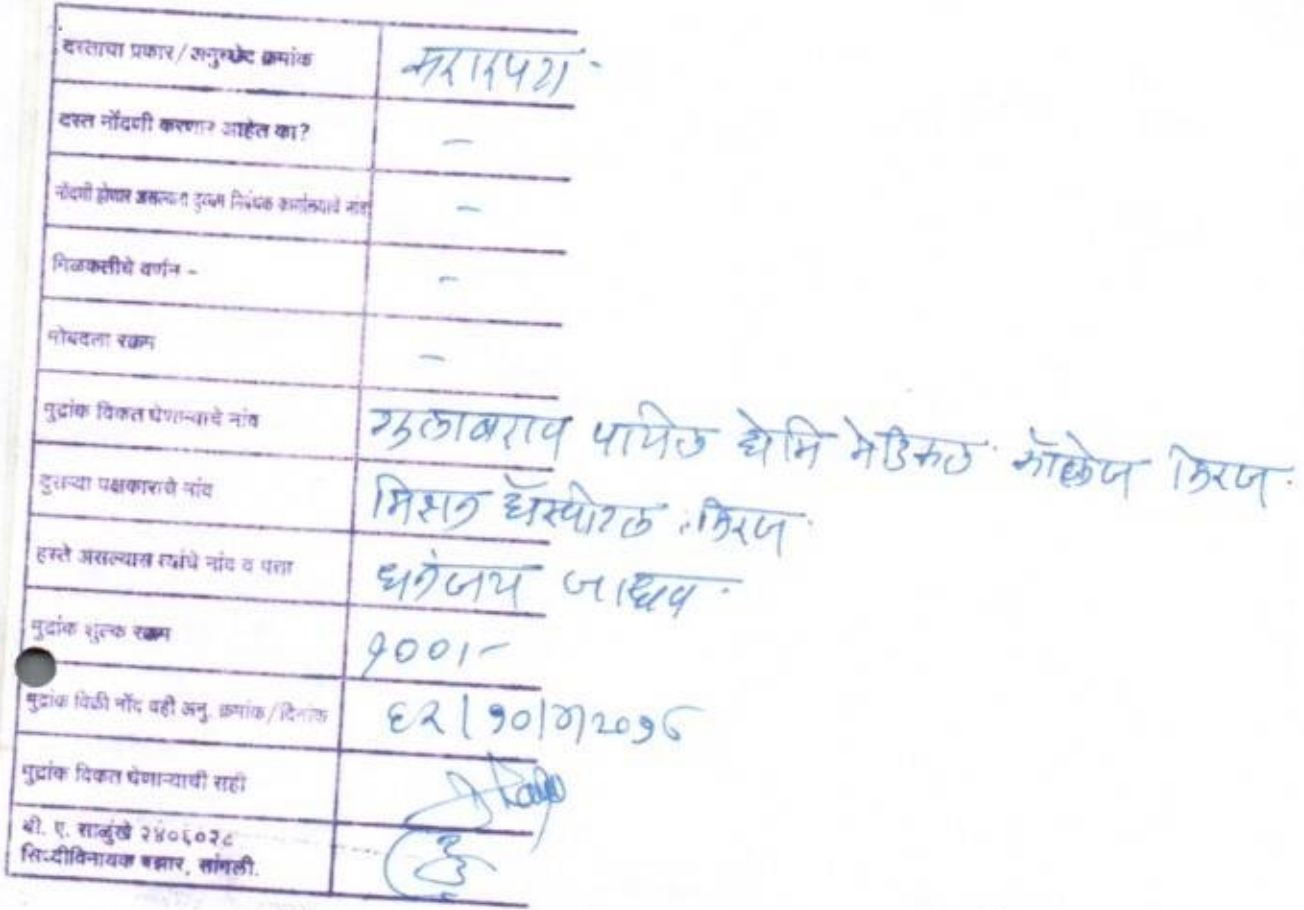 दस्ताचा प्रकार/अनुच्छेद क्रमांक करारपत्र
दस्त नोंदणी करणार आहेत का? -
नोंदणी होणार असल्यास दुय्यम निबंधक कार्यालयाचे नांव -
मिळकतीचे वर्णन - -
मोबदला रक्कम -
मुद्रांक विकत घेणाऱ्याचे नांव गुलाबराव पाटील होमि मेडिकल कॉलेज मिरज.
दुसऱ्या पक्षकाराचे नांव मिशन हॉस्पीटल मिरज.
हस्ते असल्यास त्यांचे नांव व पत्ता धनंजय जाधव.
मुद्रांक शुल्क रक्कम १००/-
मुद्रांक विक्री नोंद वही अनु. क्रमांक/दिनांक
मुद्रांक विकत घेणाऱ्याची सही
बी. ए. साळुंखे २४०६०२८
सिध्दीविनायक बझार, सांगली.